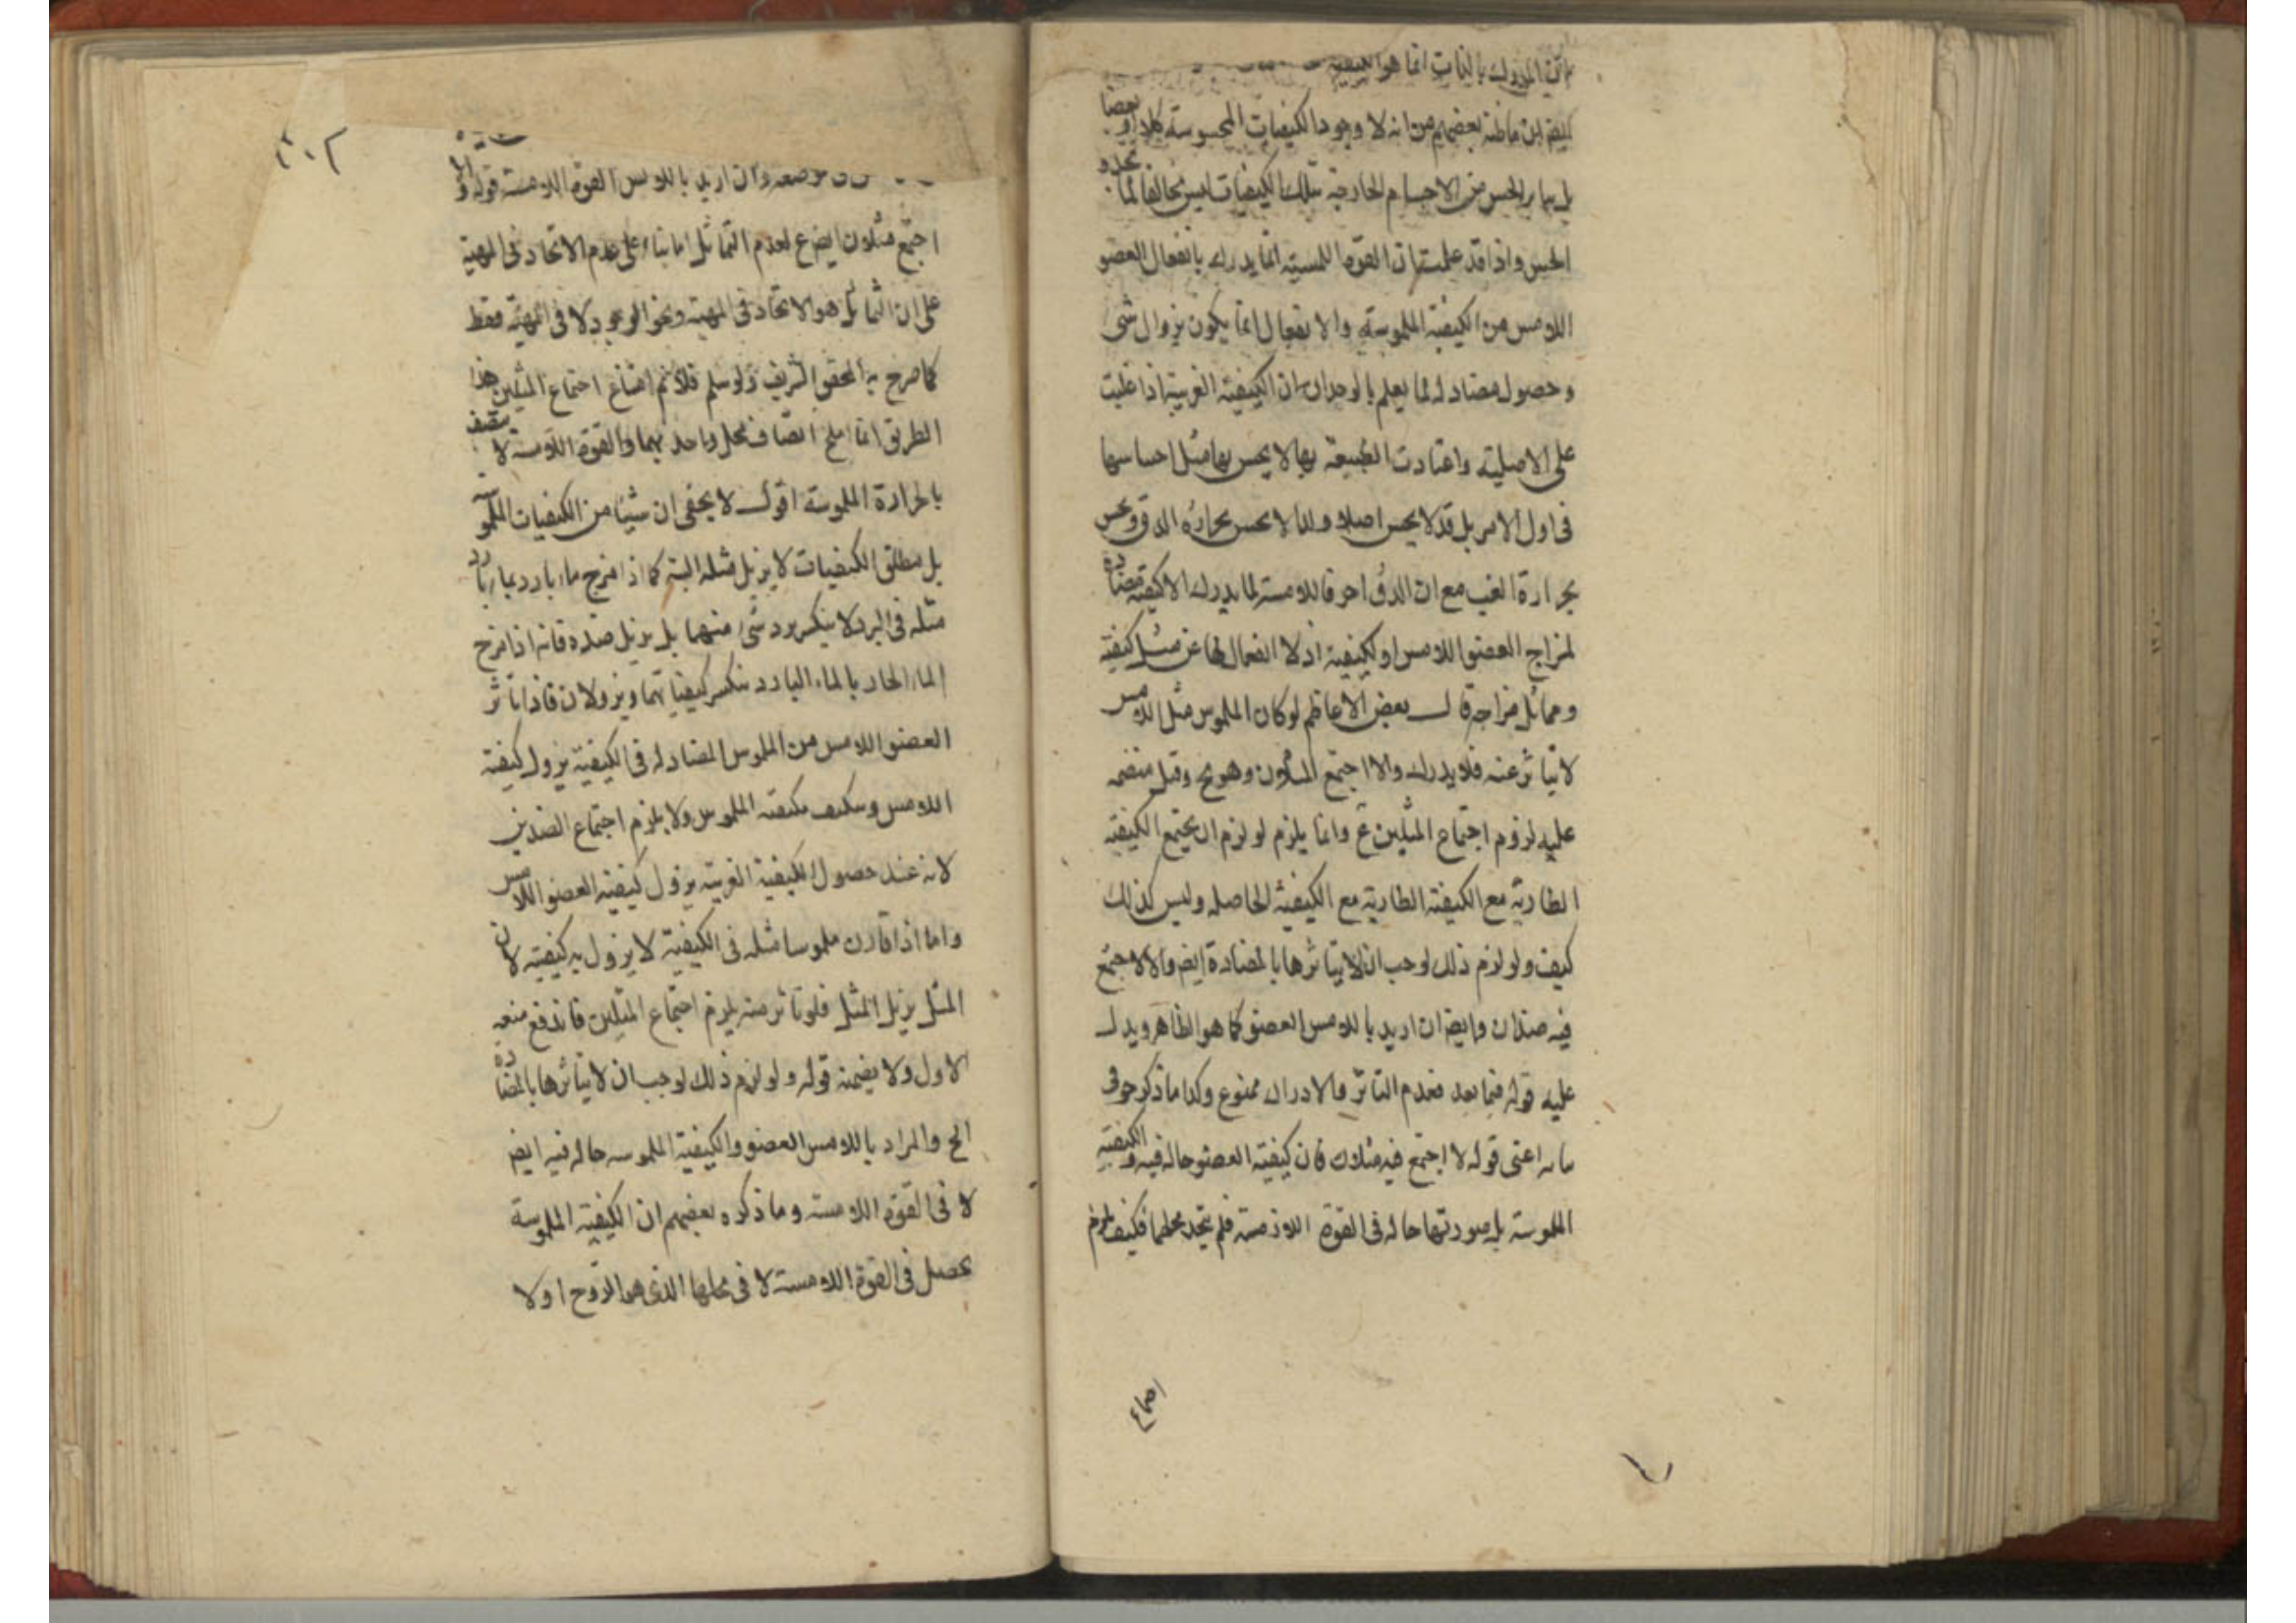 المدرك بالذات انما هو الكيفية
ايضا ان ما ظنه بعضهم من انه لا وجود الكيفيات المحسوسة كلا او بعضا
بل بما يرالحس من الاجسام الخارجية بتلك الكيفيات ليس مخالفا لما يحده
الحس واذا قد علمت ان القوة اللمسية انما يدرك بانفعال العضو
اللامس من الكيفية الملموسة والانفعال انما يكون بزوال شئ
وحصول مضاد له لما يعلم بالوجدان ان الكيفية الغريبة اذا غلبت
على الاصلية واعتادت الطبيعة بها لا يحس بها مثل احساسها
فى اول الامر بل قد لا يحس اصلا ولذا لا يحس بحرارة الدق ويحس
بحرارة الغب مع ان الدق احر فاللامسة لما يدرك الا كيفية مضادة
لمزاج العضو اللامس او لكيفيته اذ لا انفعال لها عن مثل كيفيته
ومماثل مزاجه قال بعض الاعاظم لو كان الملموس مثل اللامس
لا يتاثر عنه فلا يدرك والا اجتمع المثلان وهو مح وقيل
عليه لزوم اجتماع المثلين ع وانما يلزم لو لزم ان يجتمع الكيفية
الطارية مع الكيفية الطارية مع الكيفية الحاصلة وليس كذلك
كيف ولو لزم ذلك لوجب ان لا يتاثرها بالمضادة ايض والا لاجتمع
فيه ضدان وايض ان اريد باللامس العضو كما هو الظاهر ويدل
عليه قوله فيما بعد فعدم التاثر والادراك ممنوع وكذا ما ذكر حو فى
اعنى قوله لا اجتمع فيه مثلان فان كيفية العضو حالة فيه والكيفية
الملموسة بل صورتها حالة فى القوة اللامسة فلم يتحد محلهما فكيف يلزم
اجماع
٣٠٢
موضعه وان اريد باللامس القوة اللامسة قوله والا
اجتمع مثلان ايض ع لعدم التماثل اما بناء على عدم الاتحاد فى المهية
على ان التماثل هو الاتحاد فى المهية ونحو الوجود لا فى المهية فقط
كما صرح به المحقق الشريف ولو سلم فلانم امتناع اجتماع المثلين بهذا
الطريق انما اتصاف محل واحد بهما والقوة اللامسة لا يتصف
بالحرارة الملموسة اقول لا يخفى ان شيئا من الكيفيات الملموسة
بل مطلق الكيفيات لا يزيل مثله البتة كما اذا مزج ماء بارد بماء بارد
مثله فى البرد لا ينكسر برد شئ منهما بل يزيل ضده فانه اذا مزج
الماء الحار بالماء البارد ينكسر كيفياتهما ويزولان فاذا تاثر
العضو اللامس من الملموس المضاد له فى الكيفية يزول كيفية
اللامس ويتكيف بكيفية الملموس ولا يلزم اجتماع الضدين
لانه عند حصول الكيفية الغريبة يزول كيفية العضو اللامس
واما اذا قارن ملموسا مثله فى الكيفية لا يزول به كيفيته لان
المثل يزيل المثل فلو تاثر منه يلزم اجتماع المثلين فاندفع منعه
الاول ولا يضمنه قوله ولو لزم ذلك لوجب ان لا يتاثرها بالمضادة
الخ والمراد باللامس العضو والكيفية الملموسة حالة فيه ايض
لا فى القوة اللامسة وما ذكره بعضهم ان الكيفية الملموسة
يحصل فى القوة اللامسة لا فى محلها الذى هو الروح اولا